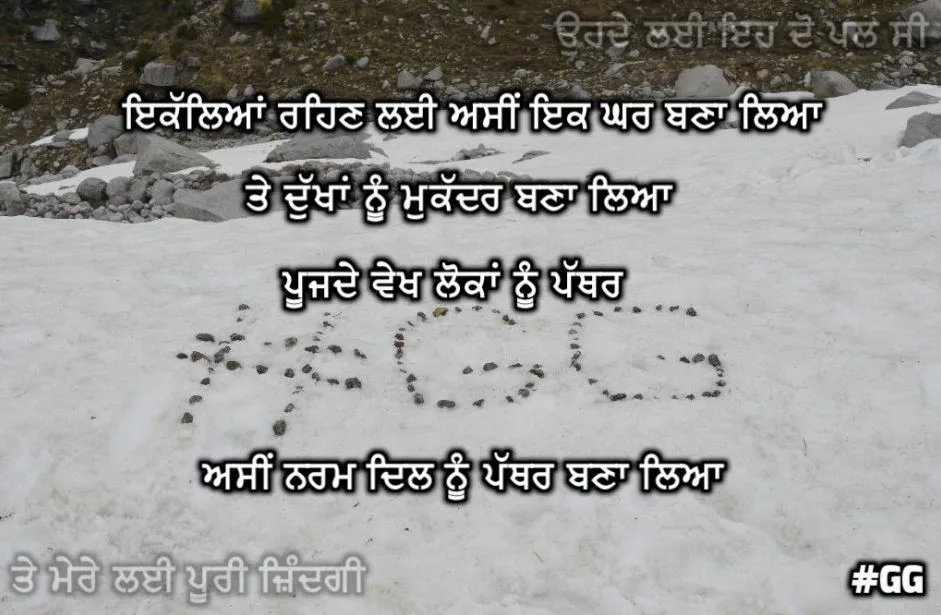 ਓਰਦੇ ਲਈ ਇਹ ਦੋ ਪਲ ਸੀ
ਇਕੱਲਿਆਂ ਰਹਿਣ ਲਈ ਅਸੀਂ ਇਕ ਘਰ ਬਣਾ ਲਿਆ
ਤੇ ਦੁੱਖਾਂ ਨੂੰ ਮੁਕੱਦਰ ਬਣਾ ਲਿਆ
ਪੂਜਦੇ ਵੇਖ ਲੋਕਾਂ ਨੂੰ ਪੱਥਰ
#GG
ਅਸੀਂ ਨਰਮ ਦਿਲ ਨੂੰ ਪੱਥਰ ਬਣਾ ਲਿਆ
ਤੇ ਮੇਰੇ ਲਈ ਪੂਰੀ ਜ਼ਿੰਦਗੀ
#GG